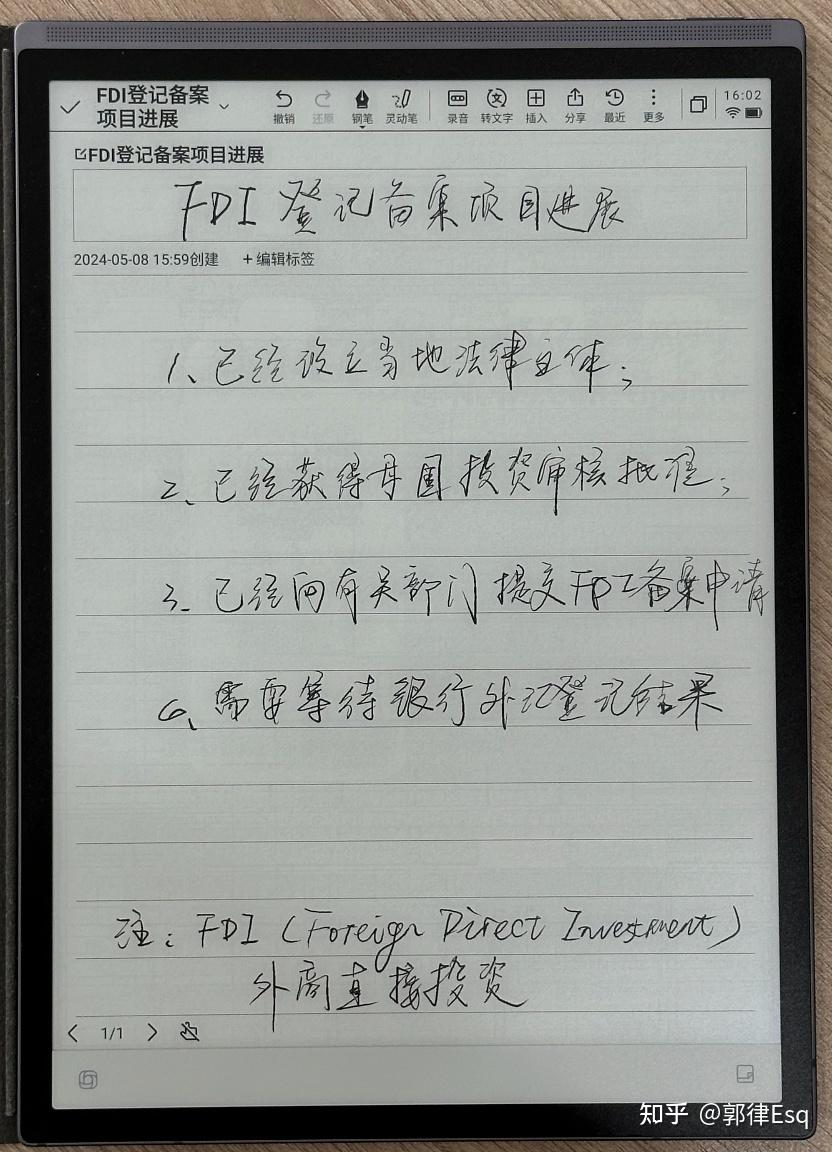 FDI登记备案
项目进展
撤销 还原 钢笔 灵动笔 录音 转文字 插入 分享 最近 更多
16:02
FDI登记备案项目进展
FDI 登记备案项目进展
2024-05-08 15:59创建 +编辑标签
1、已经设立当地法律主体；
2、已经获得母国投资审核批准；
3、已经向有关部门提交FDI备案申请
4、需要等待银行外汇登记结果
注：FDI（Foreign Direct Investment）
外商直接投资
1/1
知乎 @郭律Esq